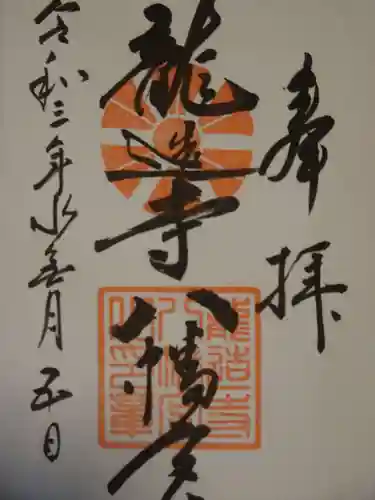 奉拝
龍造寺八幡宮
令和三年水無月五日